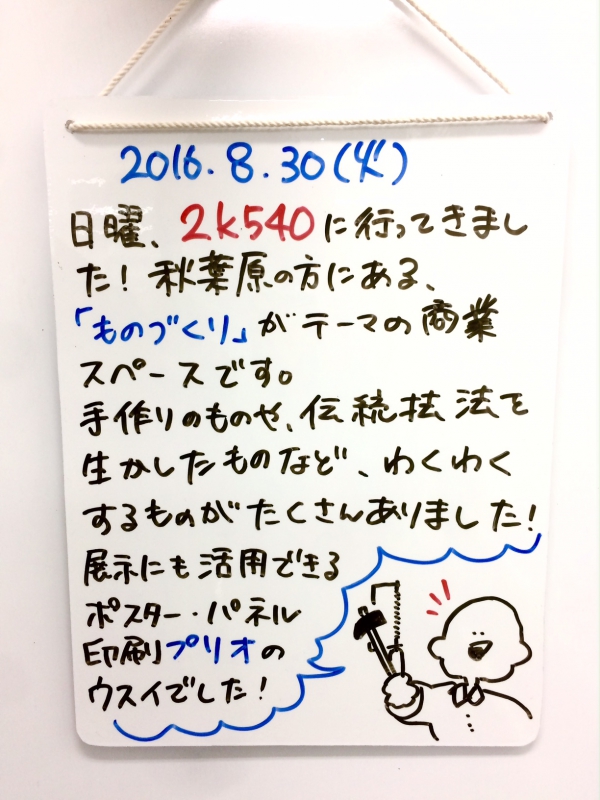 2016.8.30(火)
日曜、2k540に行ってきまし
た！秋葉原の方にある、
「ものづくり」がテーマの商業
スペースです。
手作りのものや、伝統技法を
生かしたものなど、わくわく
するものがたくさんありました！
展示にも活用できる
ポスター・パネル
印刷プリオの
ウスイでした！